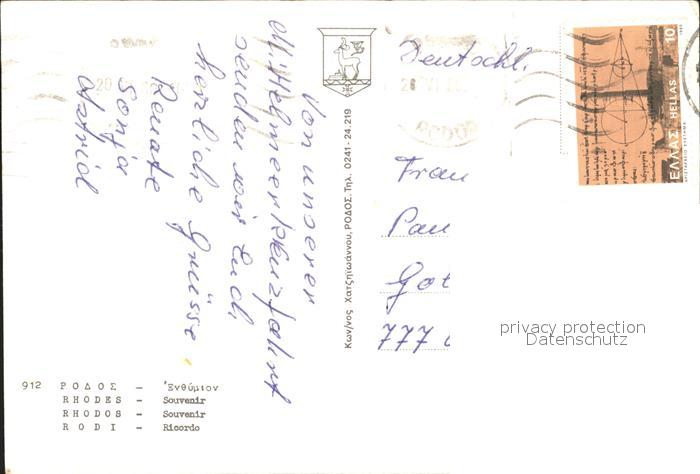 Von unserer
Mittelmeerkreuzfahrt
senden wir Euch
herzliche Grüsse
Renate
Sonja
Astrid
Deutschl.
Frau
Pau
Got
777
privacy protection
Datenschutz
ΕΛΛΑΣ HELLAS 10
Κων/νος Χατζηϊωάννου, ΡΟΔΟΣ, Τηλ. 0241-24.219
912 ΡΟΔΟΣ - Ἐνθύμιον
RHODES - Souvenir
RHODOS - Souvenir
RODI - Ricordo